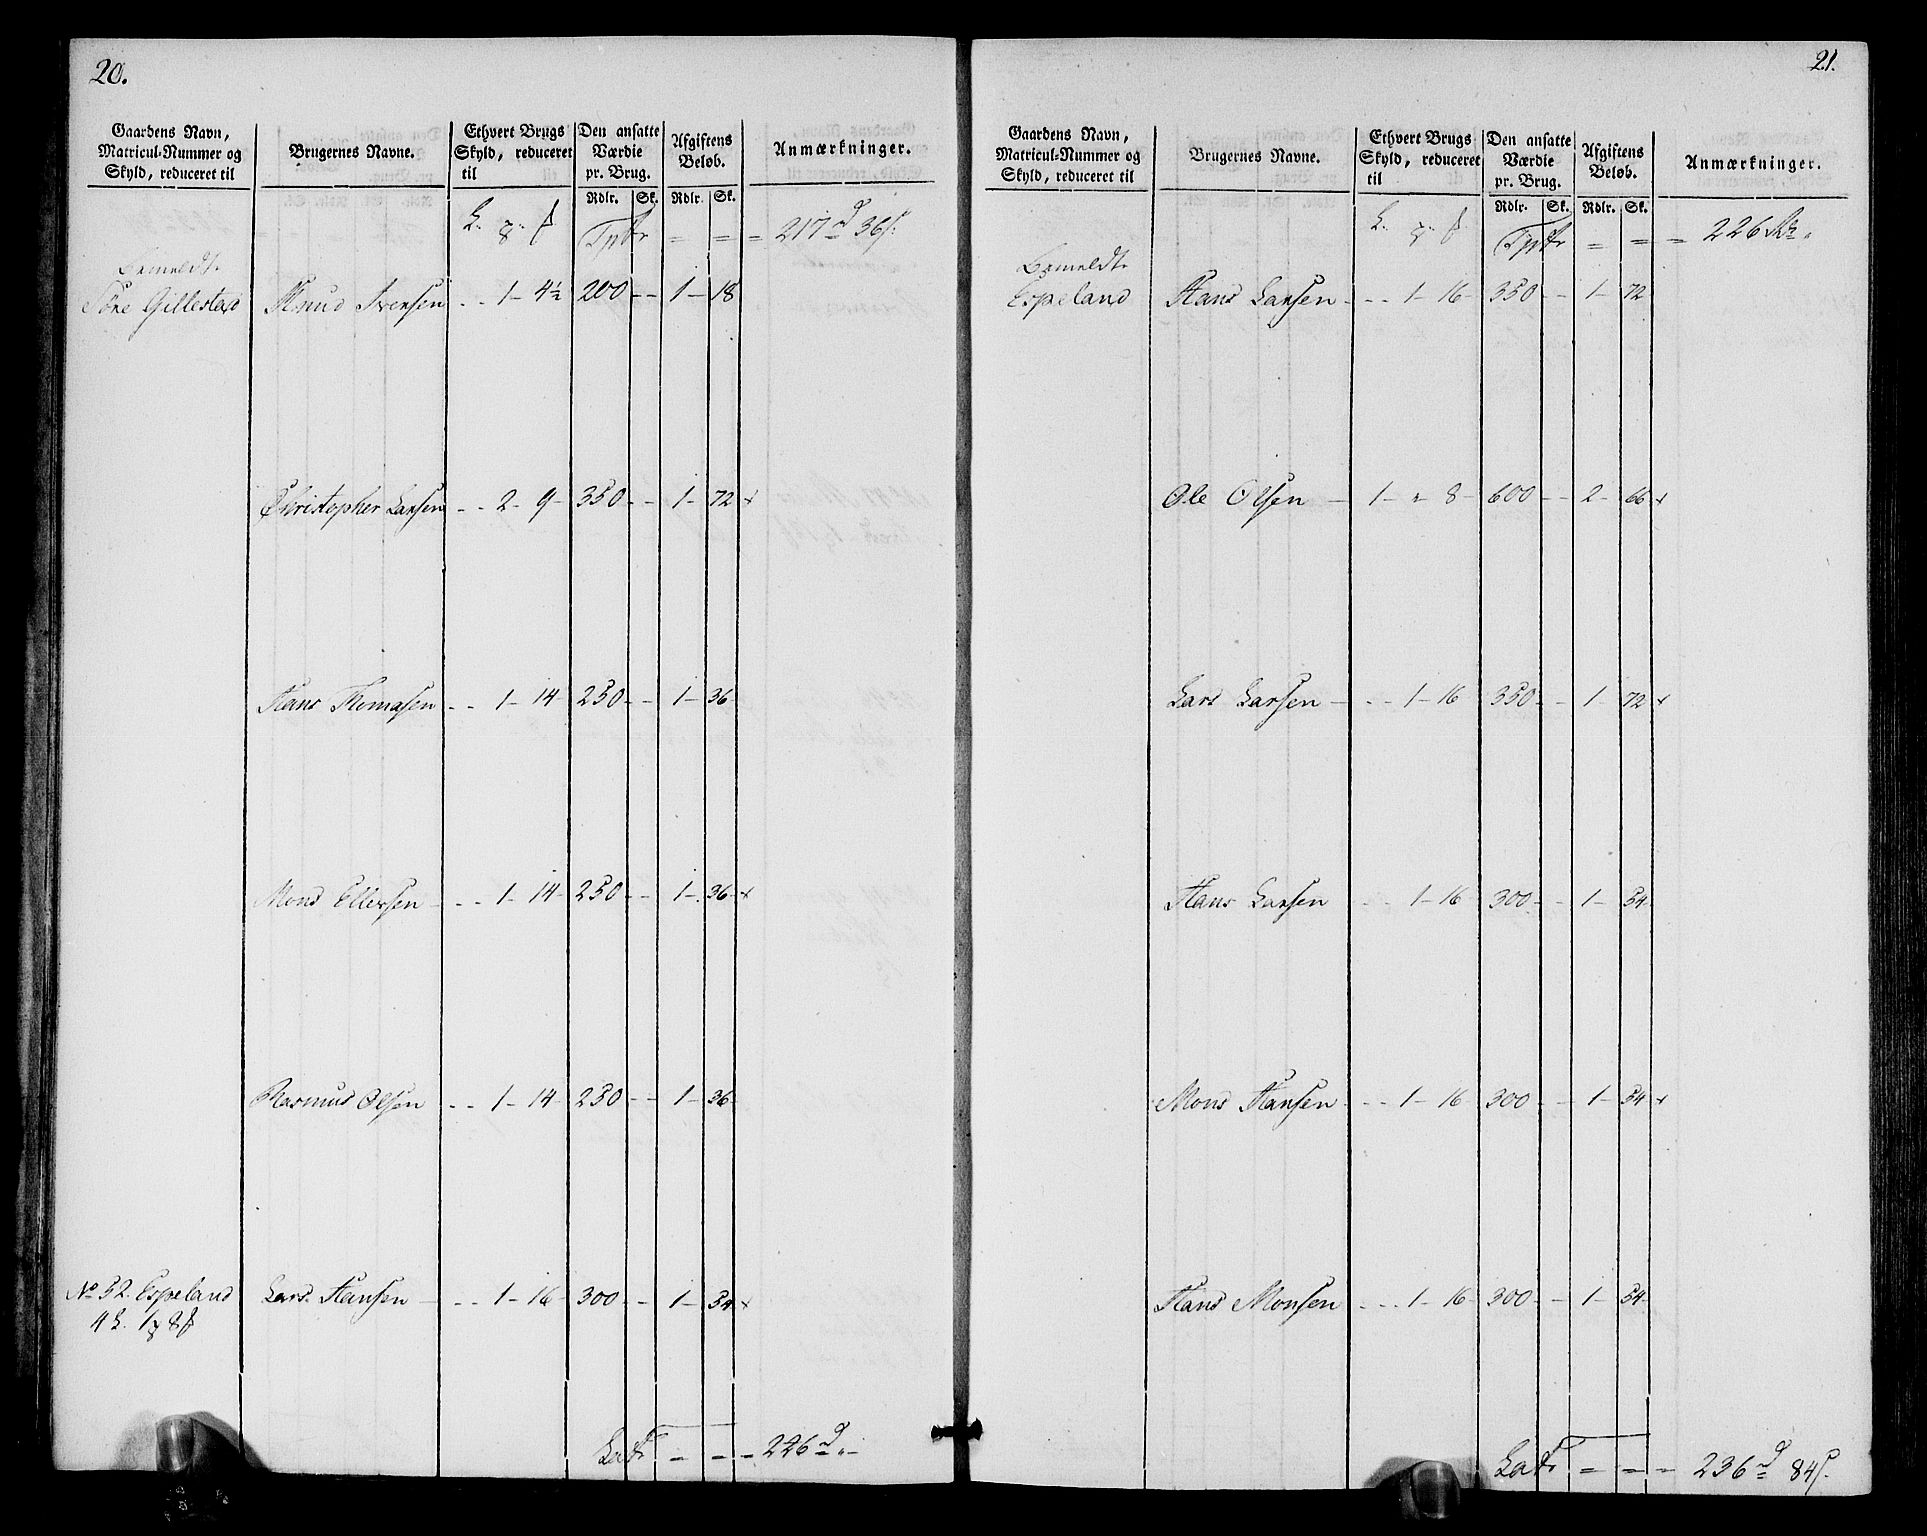 20.
Gaardens Navn, Matricul-Nummer og Skyld, reduceret til
Brugernes Navne.
Ethvert Brugs Skyld, reduceret til
Den ansatte Værdie pr. Brug.
Afgiftens Beløb.
Anmærkninger.
Rdlr. Sk. Rdlr. Sk.
Tpt = = = 217 d 36 s.
Bemeldt
Tore Gillestad Knud Iversen - - 1 - 4½ 200 - - 1 - 18
Christopher Larsen - - 2 - 9 - 350 - - 1 - 72 x
Hans Thomasen - - 1 - 14 - 250 - - 1 - 36 -
Mons Ellersen - - - 1 - 14 - 250 - - 1 - 36 - x
Rasmus Olsen - - 1 - 14 - 250 - - 1 - 36 -
No 32. Espeland Lars Hansen - - - 1 - 16 - 300 - - 1 - 54 x
4
Lat = = = 226 d " -
21.
Gaardens Navn, Matricul-Nummer og Skyld, reduceret til
Brugernes Navne.
Ethvert Brugs Skyld, reduceret til
Den ansatte Værdie pr. Brug.
Afgiftens Beløb.
Anmærkninger.
Rdlr. Sk. Rdlr. Sk.
Tpt = = = 226
Bemeldt
Espeland Hans Larsen - - - 1 - 16 - 350 - - 1 - 72
Ole Olsen - 1 - " 8 - 600 - - 2 - 66 x
Lars Larsen - - - 1 - 16 350 - - 1 - 72 x
Hans Larsen - - 1 - 16 300 - - 1 - 54
Mons Hansen - - - 1 - 16 - 300 - - 1 - 54 x
Hans Monsen - - - 1 - 16 - 300 - - 1 - 54 -
Lat = = = 236 d 84 s.